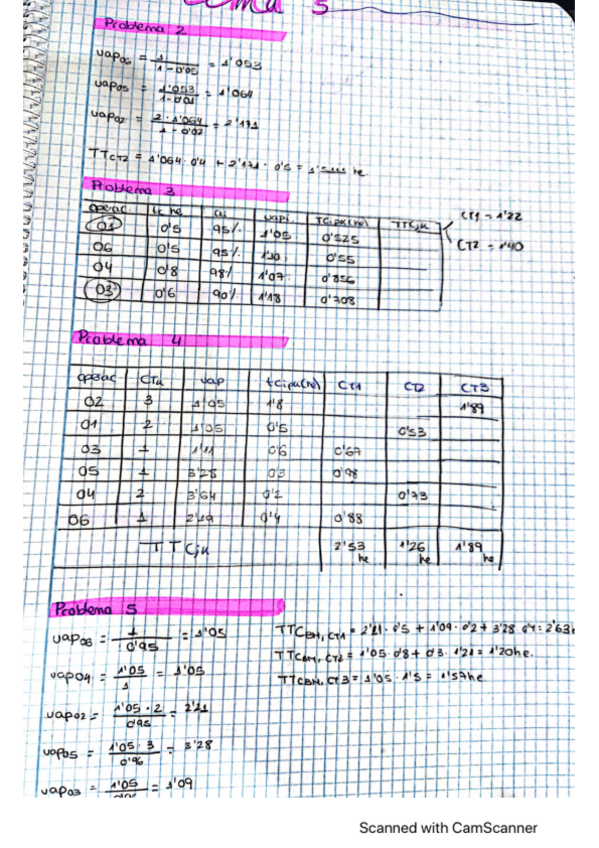 Tema 5
Problema 2
uap06 = 1 / 1 - 0'05 = 1'053
uap05 = 1'053 / 1 - 0'01 = 1'064
uap02 = 2 · 1'064 / 1 - 0'02 = 2'171
TTCT2 = 1'064 · 0'4 + 2'171 · 0'5 = he
Problema 3
operac. tc he ai uapi TCipk(he) TTCjk CT1 = 1'22
01 0'5 95% 1'05 0'525 CT2 = 1'40
06 0'5 95% 1'10 0'55
04 0'8 98% 1'07 0'856
03 0'6 90% 1'18 0'708
Problema 4
operac CTk uap tcipk(he) CT1 CT2 CT3
02 3 1'05 1'8 1'89
01 2 1'05 0'5 0'53
03 1 1'11 0'6 0'67
05 1 3'28 0'3 0'98
04 2 3'64 0'2 0'73
06 1 2'19 0'4 0'88
TTCjk 2'53 he 1'26 he 1'89 he
Problema 5
uap06 = 1 / 0'95 = 1'05
TTCBM,CT1 = 2'21 · 0'5 + 1'09 · 0'2 + 3'28 · 0'4 = 2'63h
uap04 = 1'05 / 1 = 1'05
TTCBM,CT2 = 1'05 · 0'8 + 0'3 · 1'21 = 1'20he.
TTCBM,CT3 = 1'05 · 1'5 = 1'57he
uap02 = 1'05 · 2 / 0'95 = 2'21
uap05 = 1'05 · 3 / 0'96 = 3'28
uap03 = 1'05 = 1'09
Scanned with CamScanner